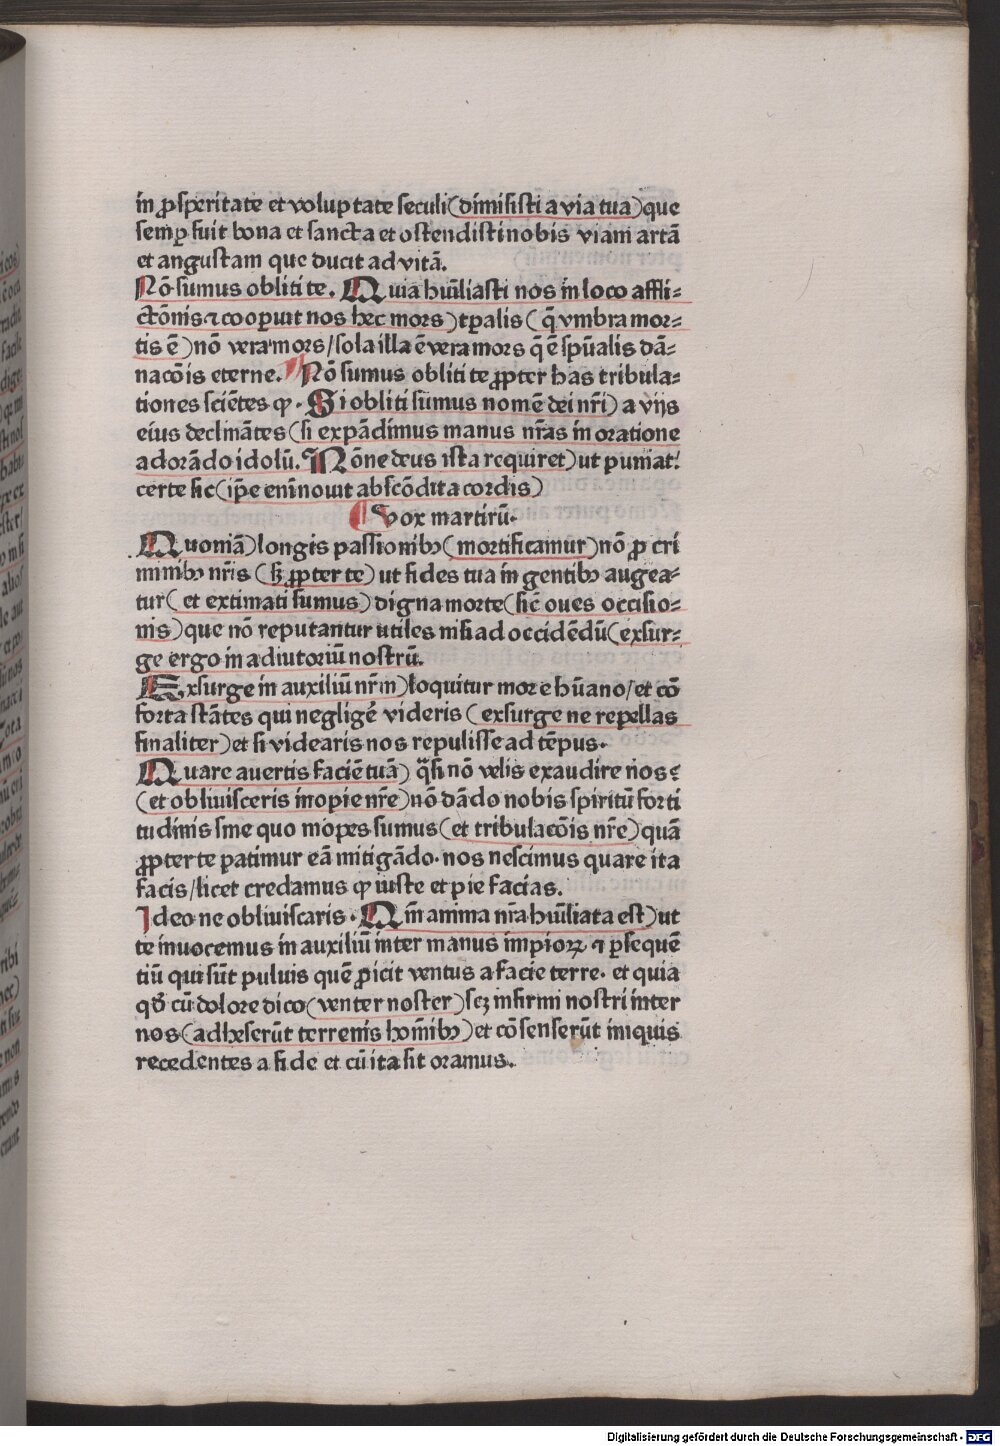 in ꝓſperitate et voluptate ſeculi(dimiſiſti a via tua)que
ſemꝑ fuit bona et ſancta et oſtendiſti nobis viam artā
et anguſtam que ducit ad vitā.
Nō ſumus obliti te. Quia hūiliaſti nos in loco affli-
ctōnis ⁊ cooꝑuit nos hec mors)tꝑalis(q̄ vmbra mor-
tis ē)nō vera mors/ſola illa ē vera mors q̄ ē ſpūalis dā-
nacōis eterne. Nō ſumus obliti te ꝓpter has tribula-
tiones ſciētes ꝙ. Si obliti ſumus nomē dei nr̄i) a vijs
eius declinātes(ſi expādimus manus nr̄as in oratione
adorādo idolū. Nōne deus iſta requiret)ut puniat?
certe ſic(ip̄e enī nouit abſcōdita cordis)
Vox martirū.
Quoniā)longis paſſionibꝰ(mortificamur)nō ꝓ cri
minibꝰ nr̄is (ſꝫ ꝓpter te)ut fides tua in gentibꝰ augea-
tur( et extimati ſumus)digna morte(ſic̄ oues occiſio-
nis)que nō reputantur utiles niſi ad occidēdū(exſur-
ge ergo in adiutoriū noſtrū.
Exſurge in auxiliū nr̄m)loquitur more hūano/et cō
forta ſtātes qui negligē videris(exſurge ne repellas
finaliter)et ſi videaris nos repuliſſe ad tēpus.
Quare auertis faciē tuā) q̄ſi nō velis exaudire nos?
(et obliuiſceris inopie nr̄e)nō dādo nobis ſpiritū forti
tudinis ſine quo inopes ſumus(et tribulacōis nr̄e)quā
ꝓpter te patimur eā mitigādo. nos neſcimus quare ita
facis/licet credamus ꝙ iuſte et pie facias.
Ideo ne obliuiſcaris. Qm̄ anima nr̄a hūiliata eſt)ut
te inuocemus in auxiliū inter manus impioꝝ ⁊ ꝑſequē
tiū qui ſūt puluis quē ꝓicit ventus a facie terre. et quia
qđ cū dolore dico(venter noſter)ſcꝫ infirmi noſtri inter
nos(adheſerūt terrenis hoīnibꝰ)et cōſenſerūt iniquis
recedentes a fide et cū ita ſit oramus.
Digitalisierung gefördert durch die Deutsche Forschungsgemeinschaft - DFG